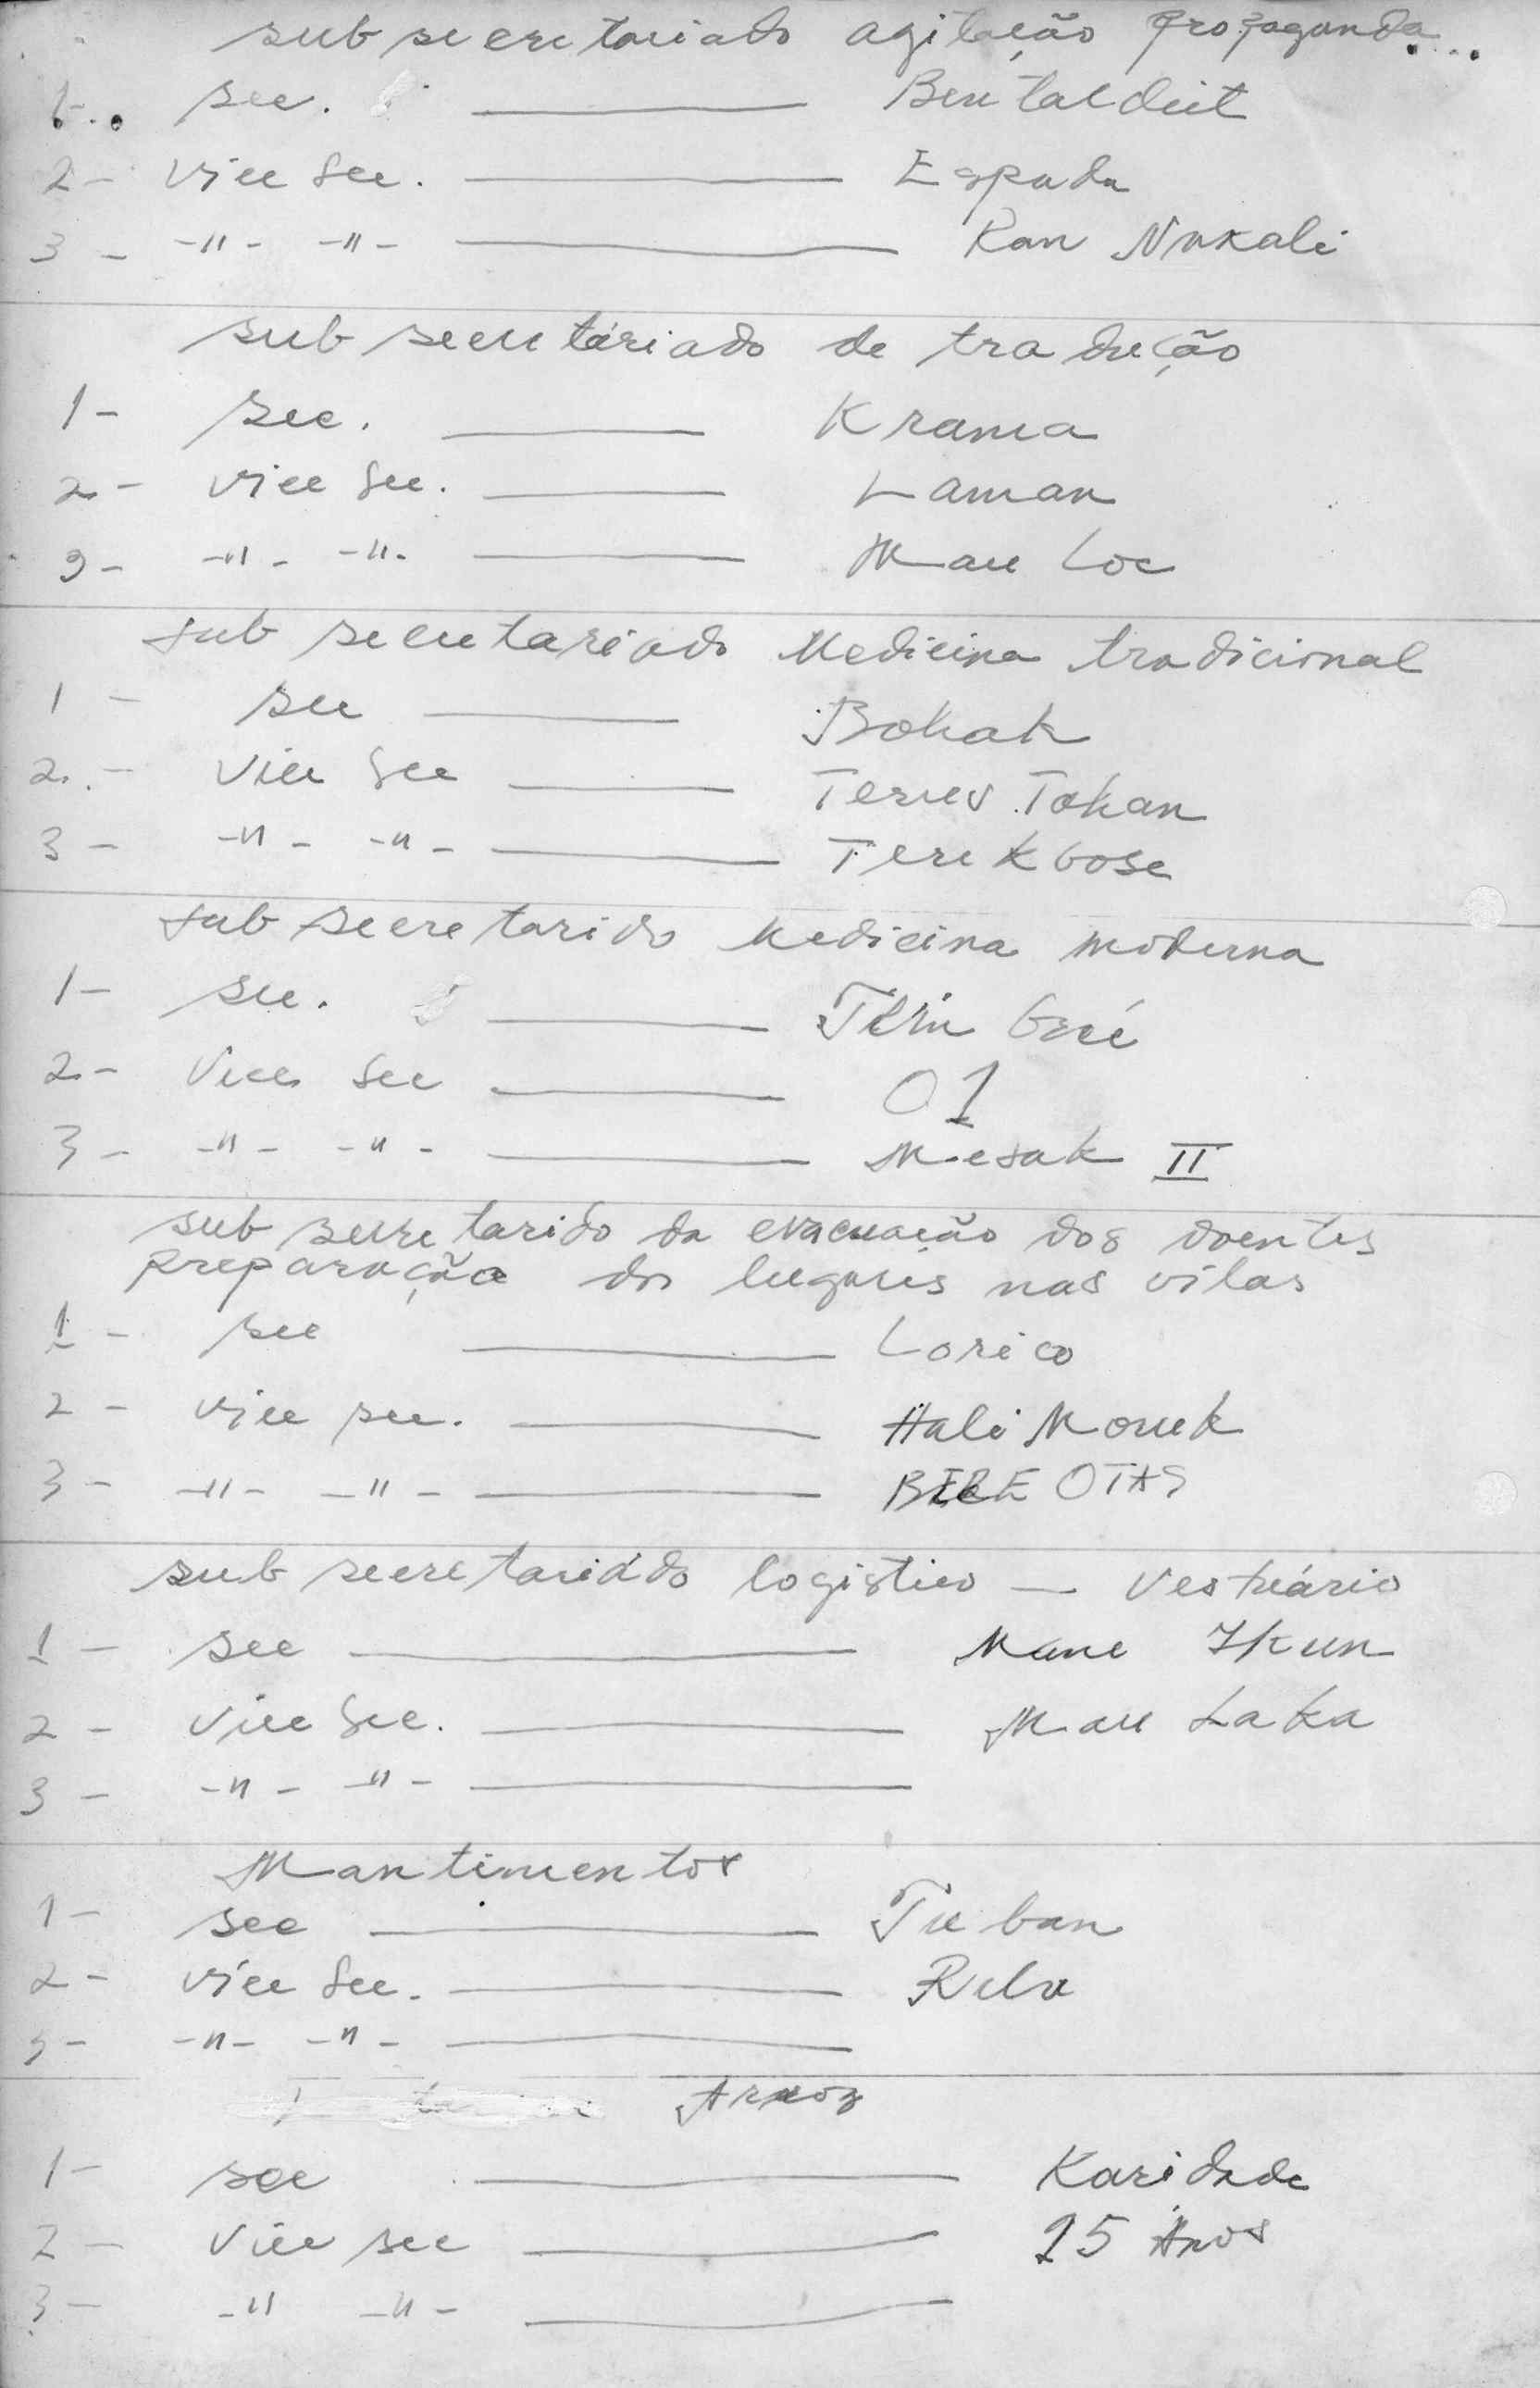 sub secretariado agitação propaganda...
1- sec. ——— Ben tal deit
2- Vice Sec. ——— Espada
3- -"- -"- ——— Ran Nakali
sub secretáriado de tradução
1- sec. ——— Krama
2- vice Sec. ——— Laman
3- -"- -"- ——— Mau Loe
sub secretariado Medicina tradicional
1 - sec ——— Bohak
2. - Vice Sec ——— Terus Tohan
3 - -"- -"- ——— Terekbose
sub secretarido Medicina moderna
1- sec. ———
2- Vice Sec ——— 01
3- -"- -"- ——— Mesak II
sub secretarido da evacuação dos doentes
preparação dos lugares nas vilas
1 - sec ——— Lorico
2 - vice sec. ——— Hali Moruk
3 - -"- -"- ——— BERE OTAS
sub secretariádo logistico — Vestuário
1 - sec ——— Mane Ikun
2 - Vice Sec. ——— Mau Laka
3 - -"- -"- ———
Mantimentos
1- sec ——— Tu ban
2- vice Sec. ——— Rula
3- -"- -"- ———
Arroz
1- sec ——— Karidade
2- Vice sec ——— 25 Anos
3- -" -"- ———